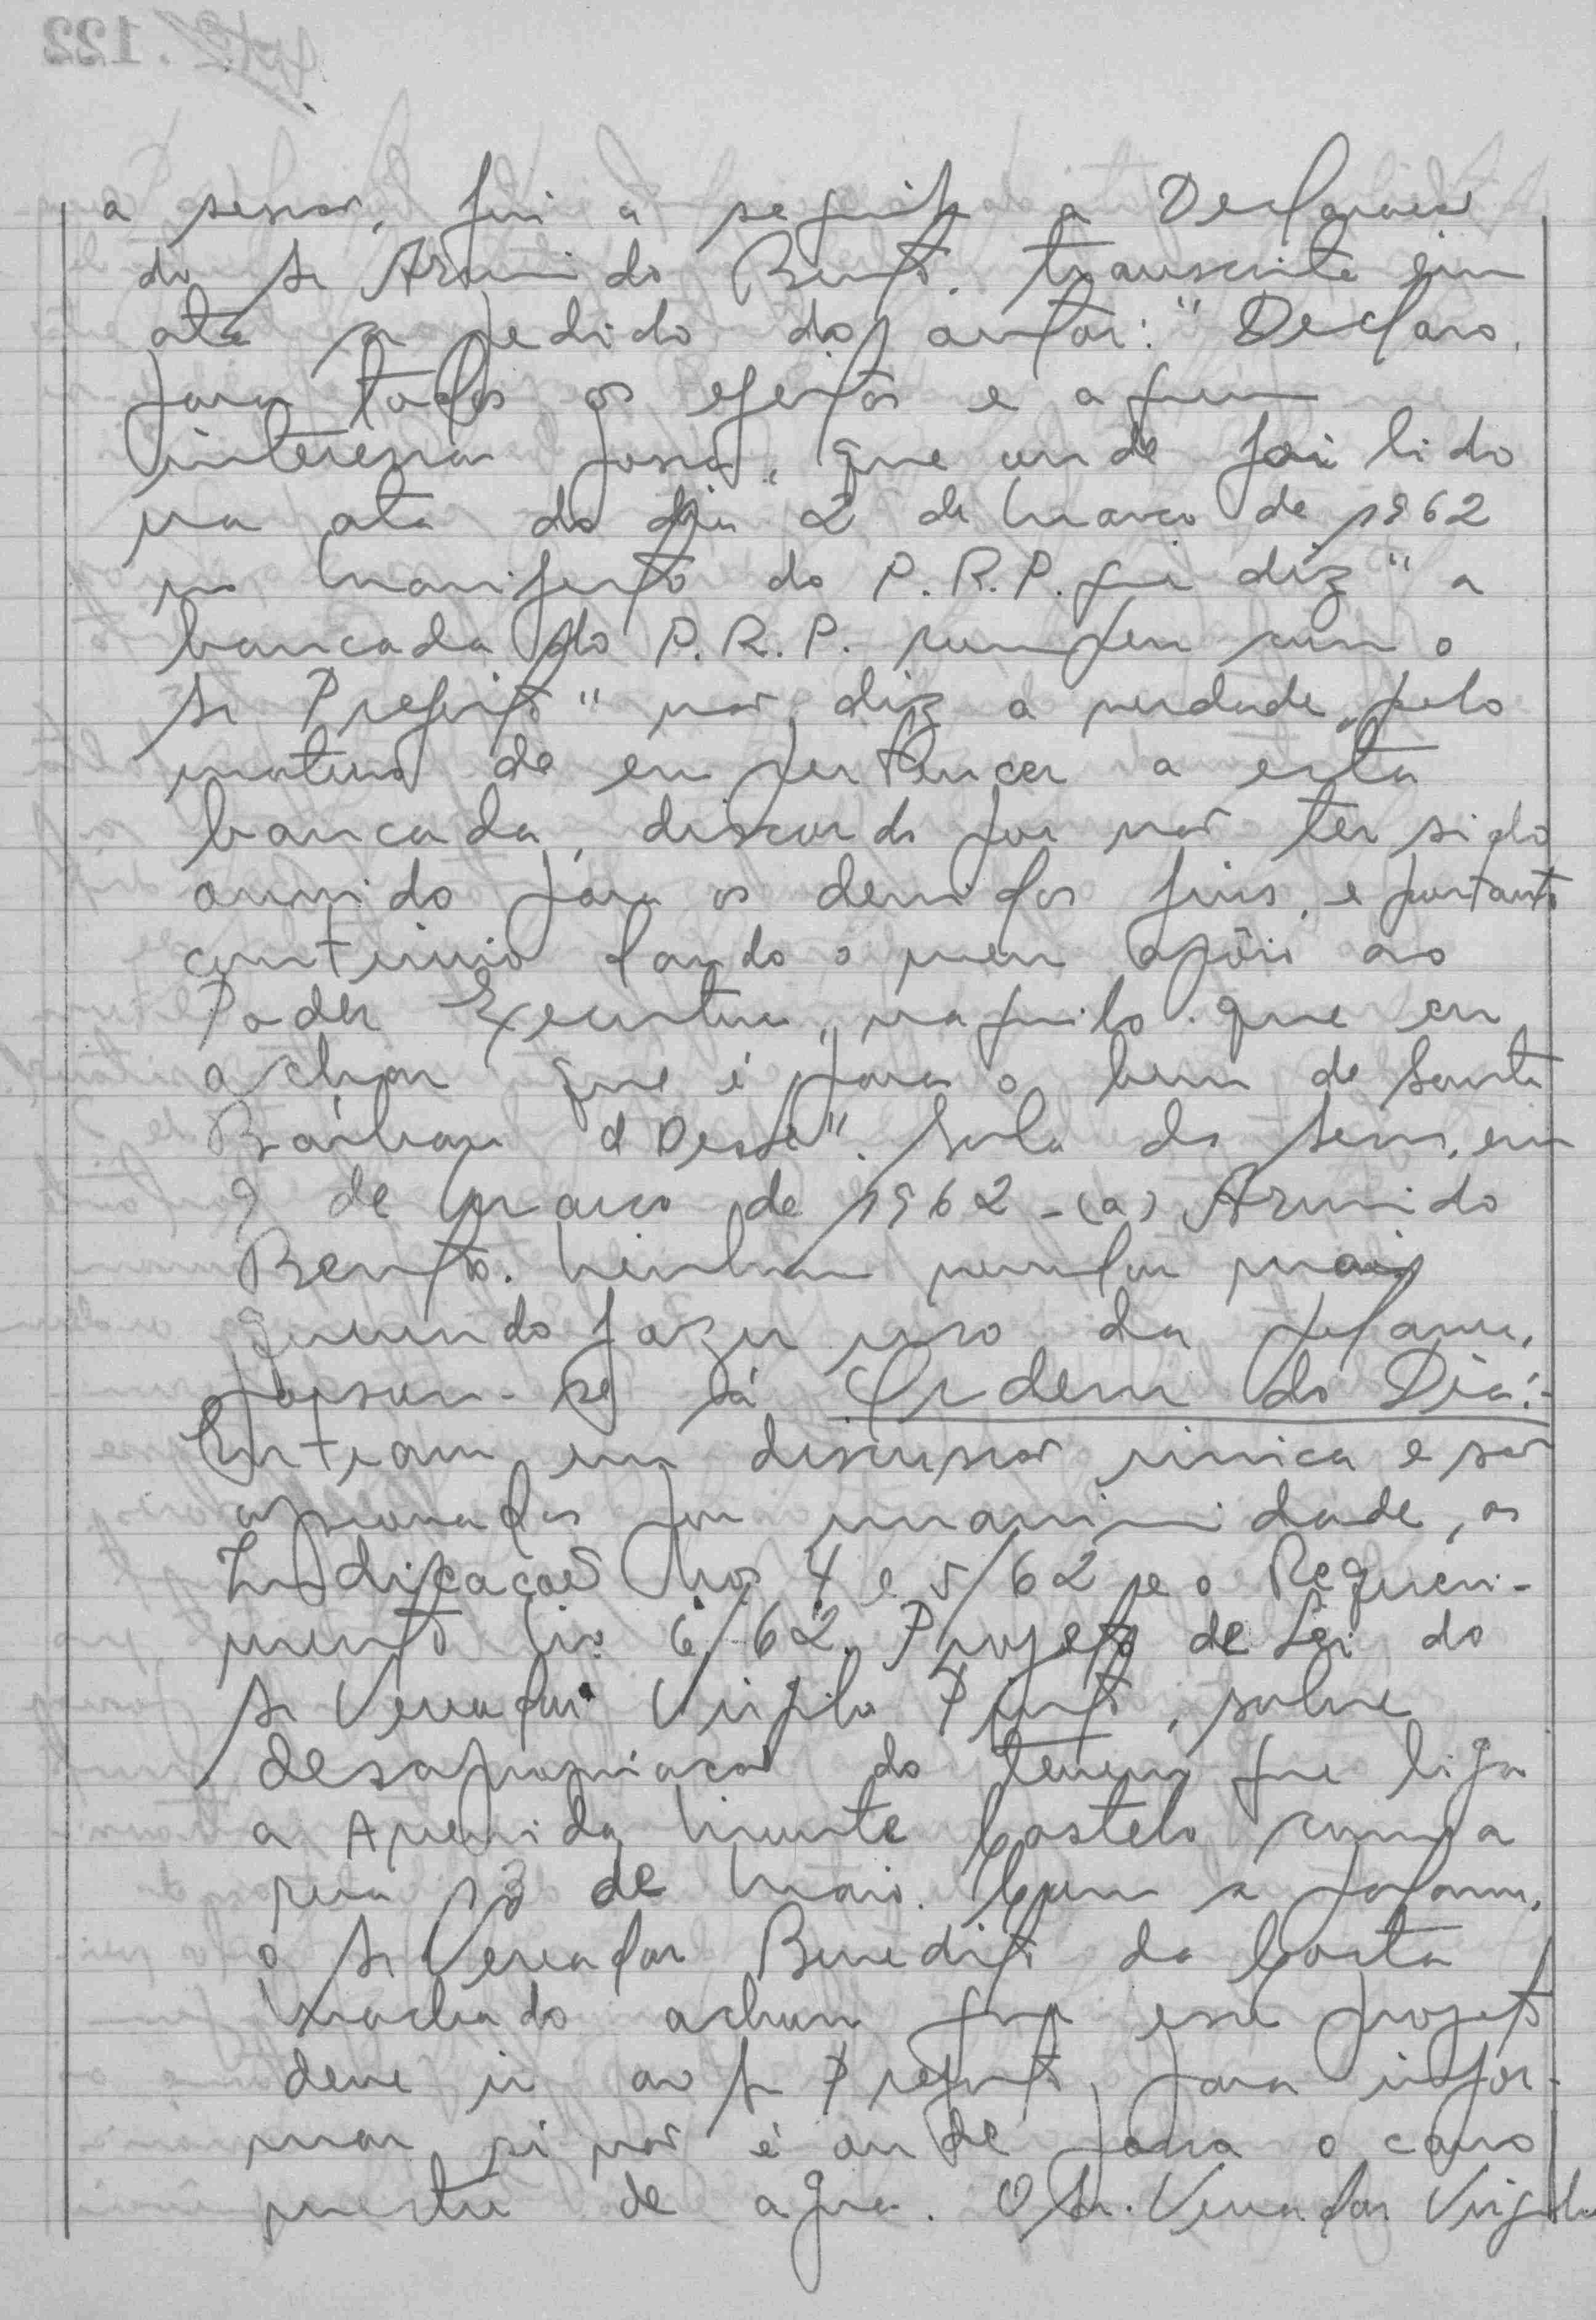 a sessão, foi a seguinte a Declaração
do Sr Armindo Bento, transcrita em
ata a pedido do autor: "Declaro,
para todos os efeitos e a quem
interessar possa, que onde foi lido
na ata do dia 2 de Março de 1962
no Manifesto do P.R.P. que diz "a
bancada do P.R.P. rompeu com o
Sr Prefeito" não diz a verdade, pelo
motivo de eu pertencer a esta
bancada, discordo por não ter sido
ouvido para os devidos fins, e portanto
continuo dando o meu apôio ao
Poder Executivo, naquilo que eu
achar que é para o bem de Santa
Bárbara d'Oeste". Sala das Sess, em
9 de Março de 1962 - (a) Armindo
Bento. Nenhum vereador mais
querendo fazer uso da palavra,
passou-se á Ordem do Dia:-
Entram em discussão unica e são
aprovadas por unanimidade, as
Indicações Nos 4 e 5/62 e o Requeri-
mento No 6/62. Projeto de Lei do
Sr Vereador Virgilio Pinto, sobre
desapropriação do terreno que liga
a Avenida Monte Castelo com a
rua 13 de Maio. Com a palavra,
o Sr Vereador Benedito da Costa
Machado achou que esse projeto
deve ir ao Sr Prefeito, para infor-
mar si não é onde passa o cano
mestre de agua. O Sr. Vereador Virgilio